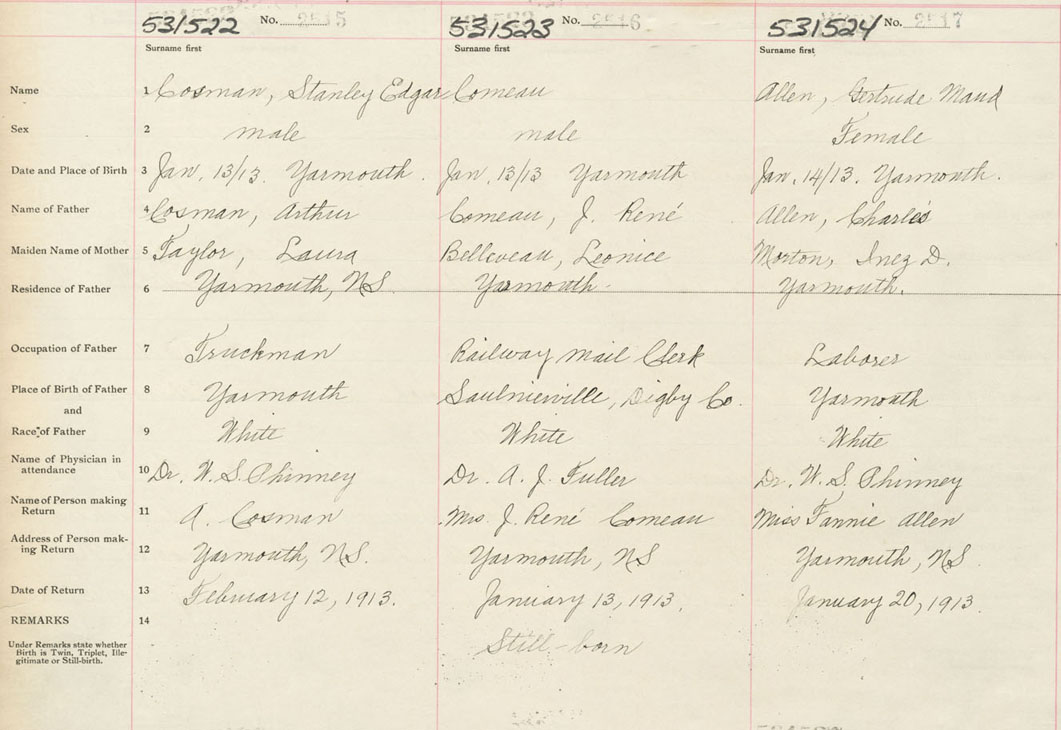 531522 No. 2515 531523 No. 2516 531524 No. 2517
Surname first Surname first Surname first
Name 1 Cosman, Stanley Edgar Comeau Allen, Gertrude Maud
Sex 2 male male Female
Date and Place of Birth 3 Jan. 13/13. Yarmouth. Jan. 13/13 Yarmouth Jan. 14/13. Yarmouth.
Name of Father 4 Cosman, Arthur Comeau, J. René Allen, Charles
Maiden Name of Mother 5 Taylor, Laura Belleveau, Leonice Morton, Inez D.
Residence of Father 6 Yarmouth, NS. Yarmouth. Yarmouth.
Occupation of Father 7 Truckman Railway Mail Clerk Laborer
Place of Birth of Father 8 Yarmouth Saulnierville, Digby Co. Yarmouth
and
Race of Father 9 White White White
Name of Physician in
attendance 10 Dr. W. S. Phinney Dr. A. J. Fuller Dr. W. S. Phinney
Name of Person making
Return 11 A. Cosman Mrs J. René Comeau Miss Fannie Allen
Address of Person mak-
ing Return 12 Yarmouth, NS. Yarmouth, NS Yarmouth, NS
Date of Return 13 February 12, 1913. January 13, 1913. January 20, 1913
REMARKS 14
Under Remarks state whether
Birth is Twin, Triplet, Ille-
gitimate or Still-birth.
Still-born